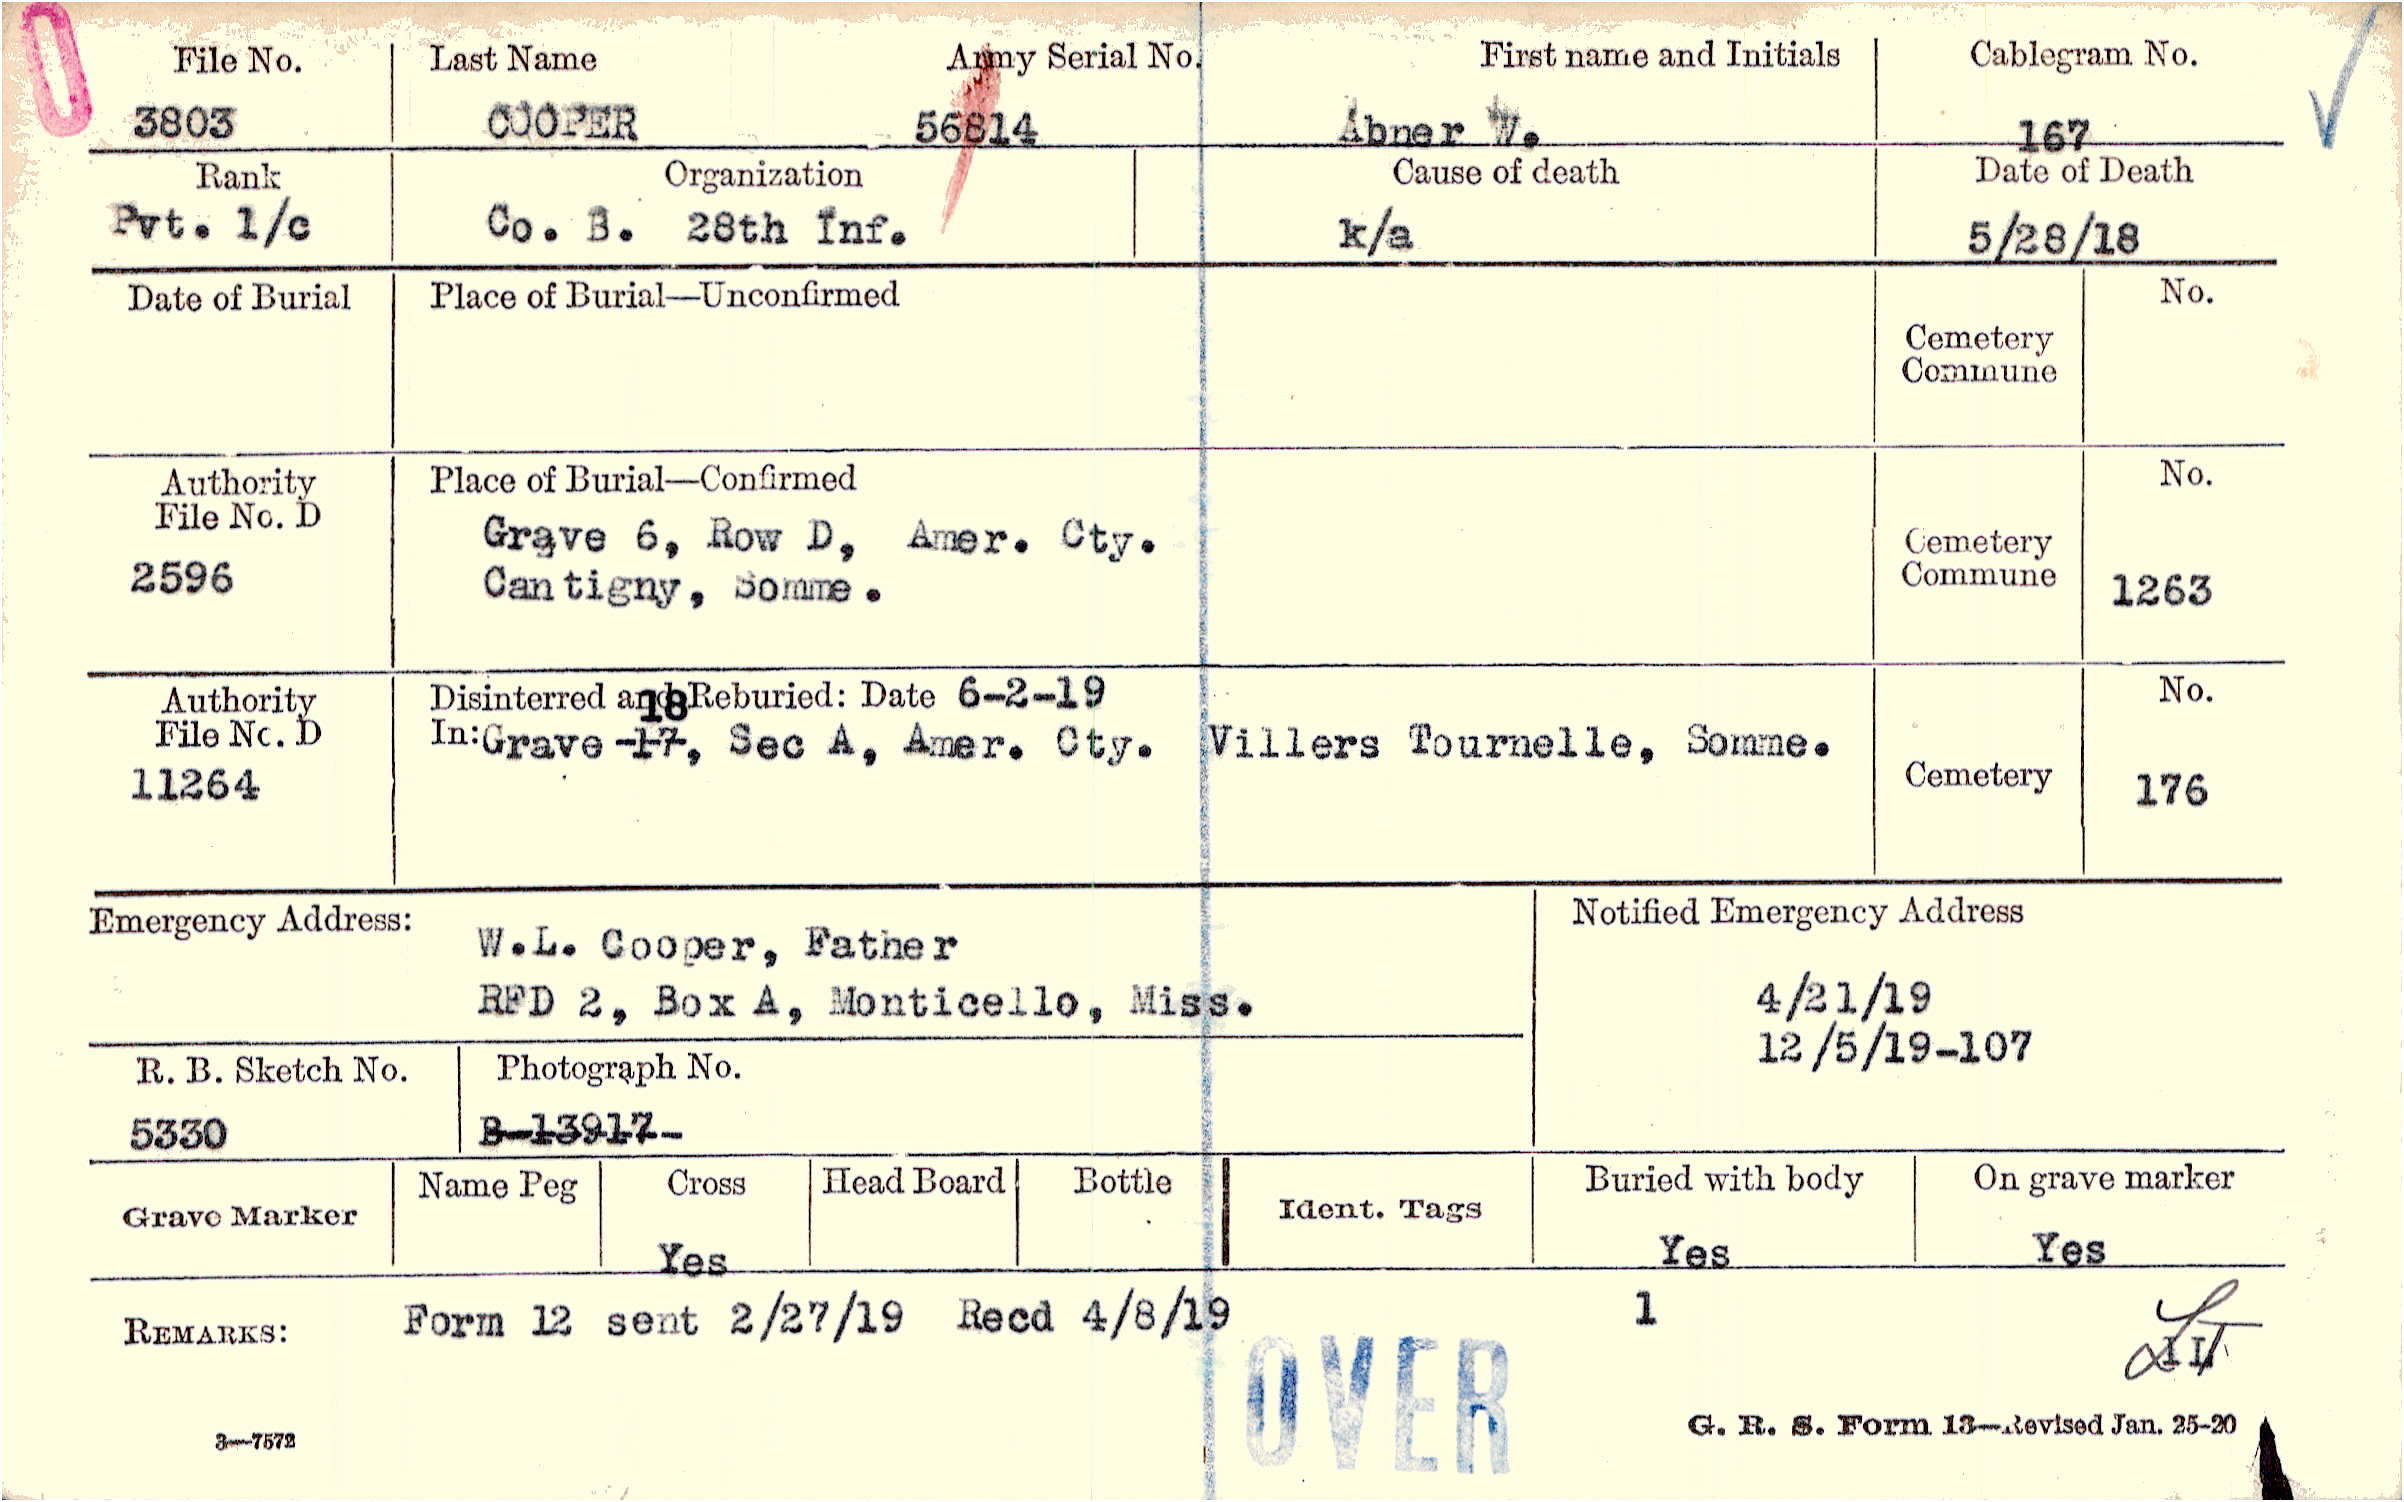 File No. Last Name Army Serial No. First name and Initials Cablegram No.
3803 COOPER 56814 Abner W. 167
Rank Organization Cause of death Date of Death
Pvt. 1/c Co. B. 28th Inf. k/a 5/28/18
Date of Burial Place of Burial—Unconfirmed No.
Cemetery
Commune
Authority Place of Burial—Confirmed No.
File No. D
Grave 6, Row D, Amer. Cty. Cemetery
2596 Cantigny, Somme. Commune 1263
Authority Disinterred and Reburied: Date 6-2-19 No.
18
File No. D In: Grave 17, Sec A, Amer. Cty. Villers Tournelle, Somme.
11264 Cemetery 176
Emergency Address: Notified Emergency Address
W.L. Cooper, Father
RFD 2, Box A, Monticello, Miss. 4/21/19
12/5/19-107
R. B. Sketch No. Photograph No.
5330 B-13917-
Grave Marker Name Peg Cross Head Board Bottle Ident. Tags Buried with body On grave marker
Yes Yes Yes
REMARKS: Form 12 sent 2/27/19 Recd 4/8/19 1
OVER
3—7572 G. R. S. Form 13—Revised Jan. 25-20